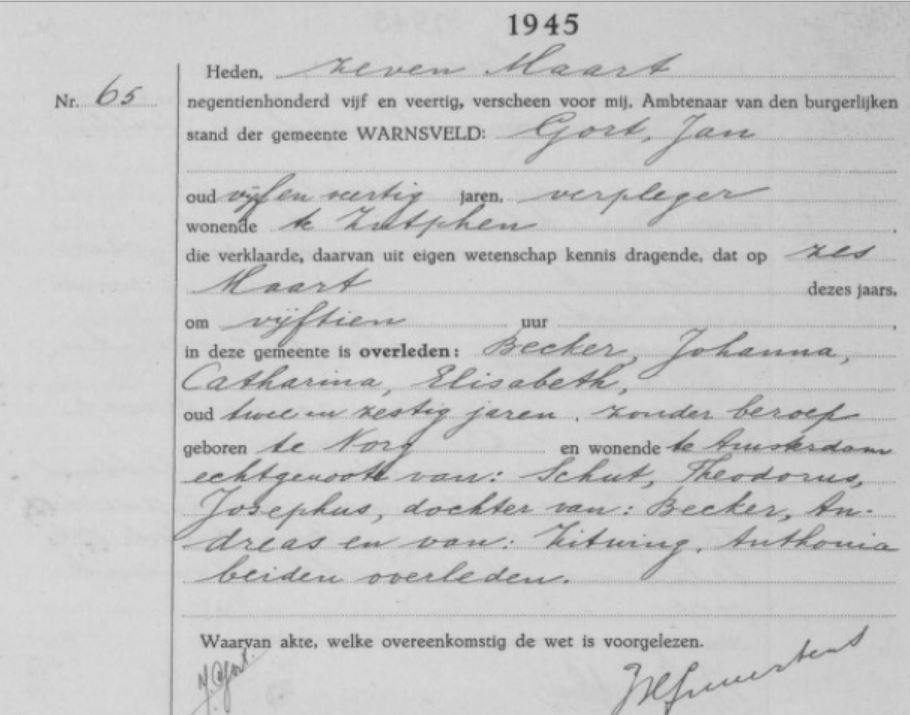 1945
Heden, zeven Maart
Nr. 65
negentienhonderd vijf en veertig, verscheen voor mij, Ambtenaar van den burgerlijken
stand der gemeente WARNSVELD: Gort, Jan
oud vijf en veertig jaren, verpleger
wonende te Zutphen
die verklaarde, daarvan uit eigen wetenschap kennis dragende, dat op zes
Maart dezes jaars,
om vijftien uur
in deze gemeente is overleden: Becker, Johanna,
Catharina, Elisabeth,
oud twee en zestig jaren, zonder beroep
geboren te Norg en wonende te Amsterdam
echtgenoote van: Schut, Theodorus,
Josephus, dochter van: Becker, An-
dreas en van: Anthonia
beiden overleden.
Waarvan akte, welke overeenkomstig de wet is voorgelezen.
J. Gort.